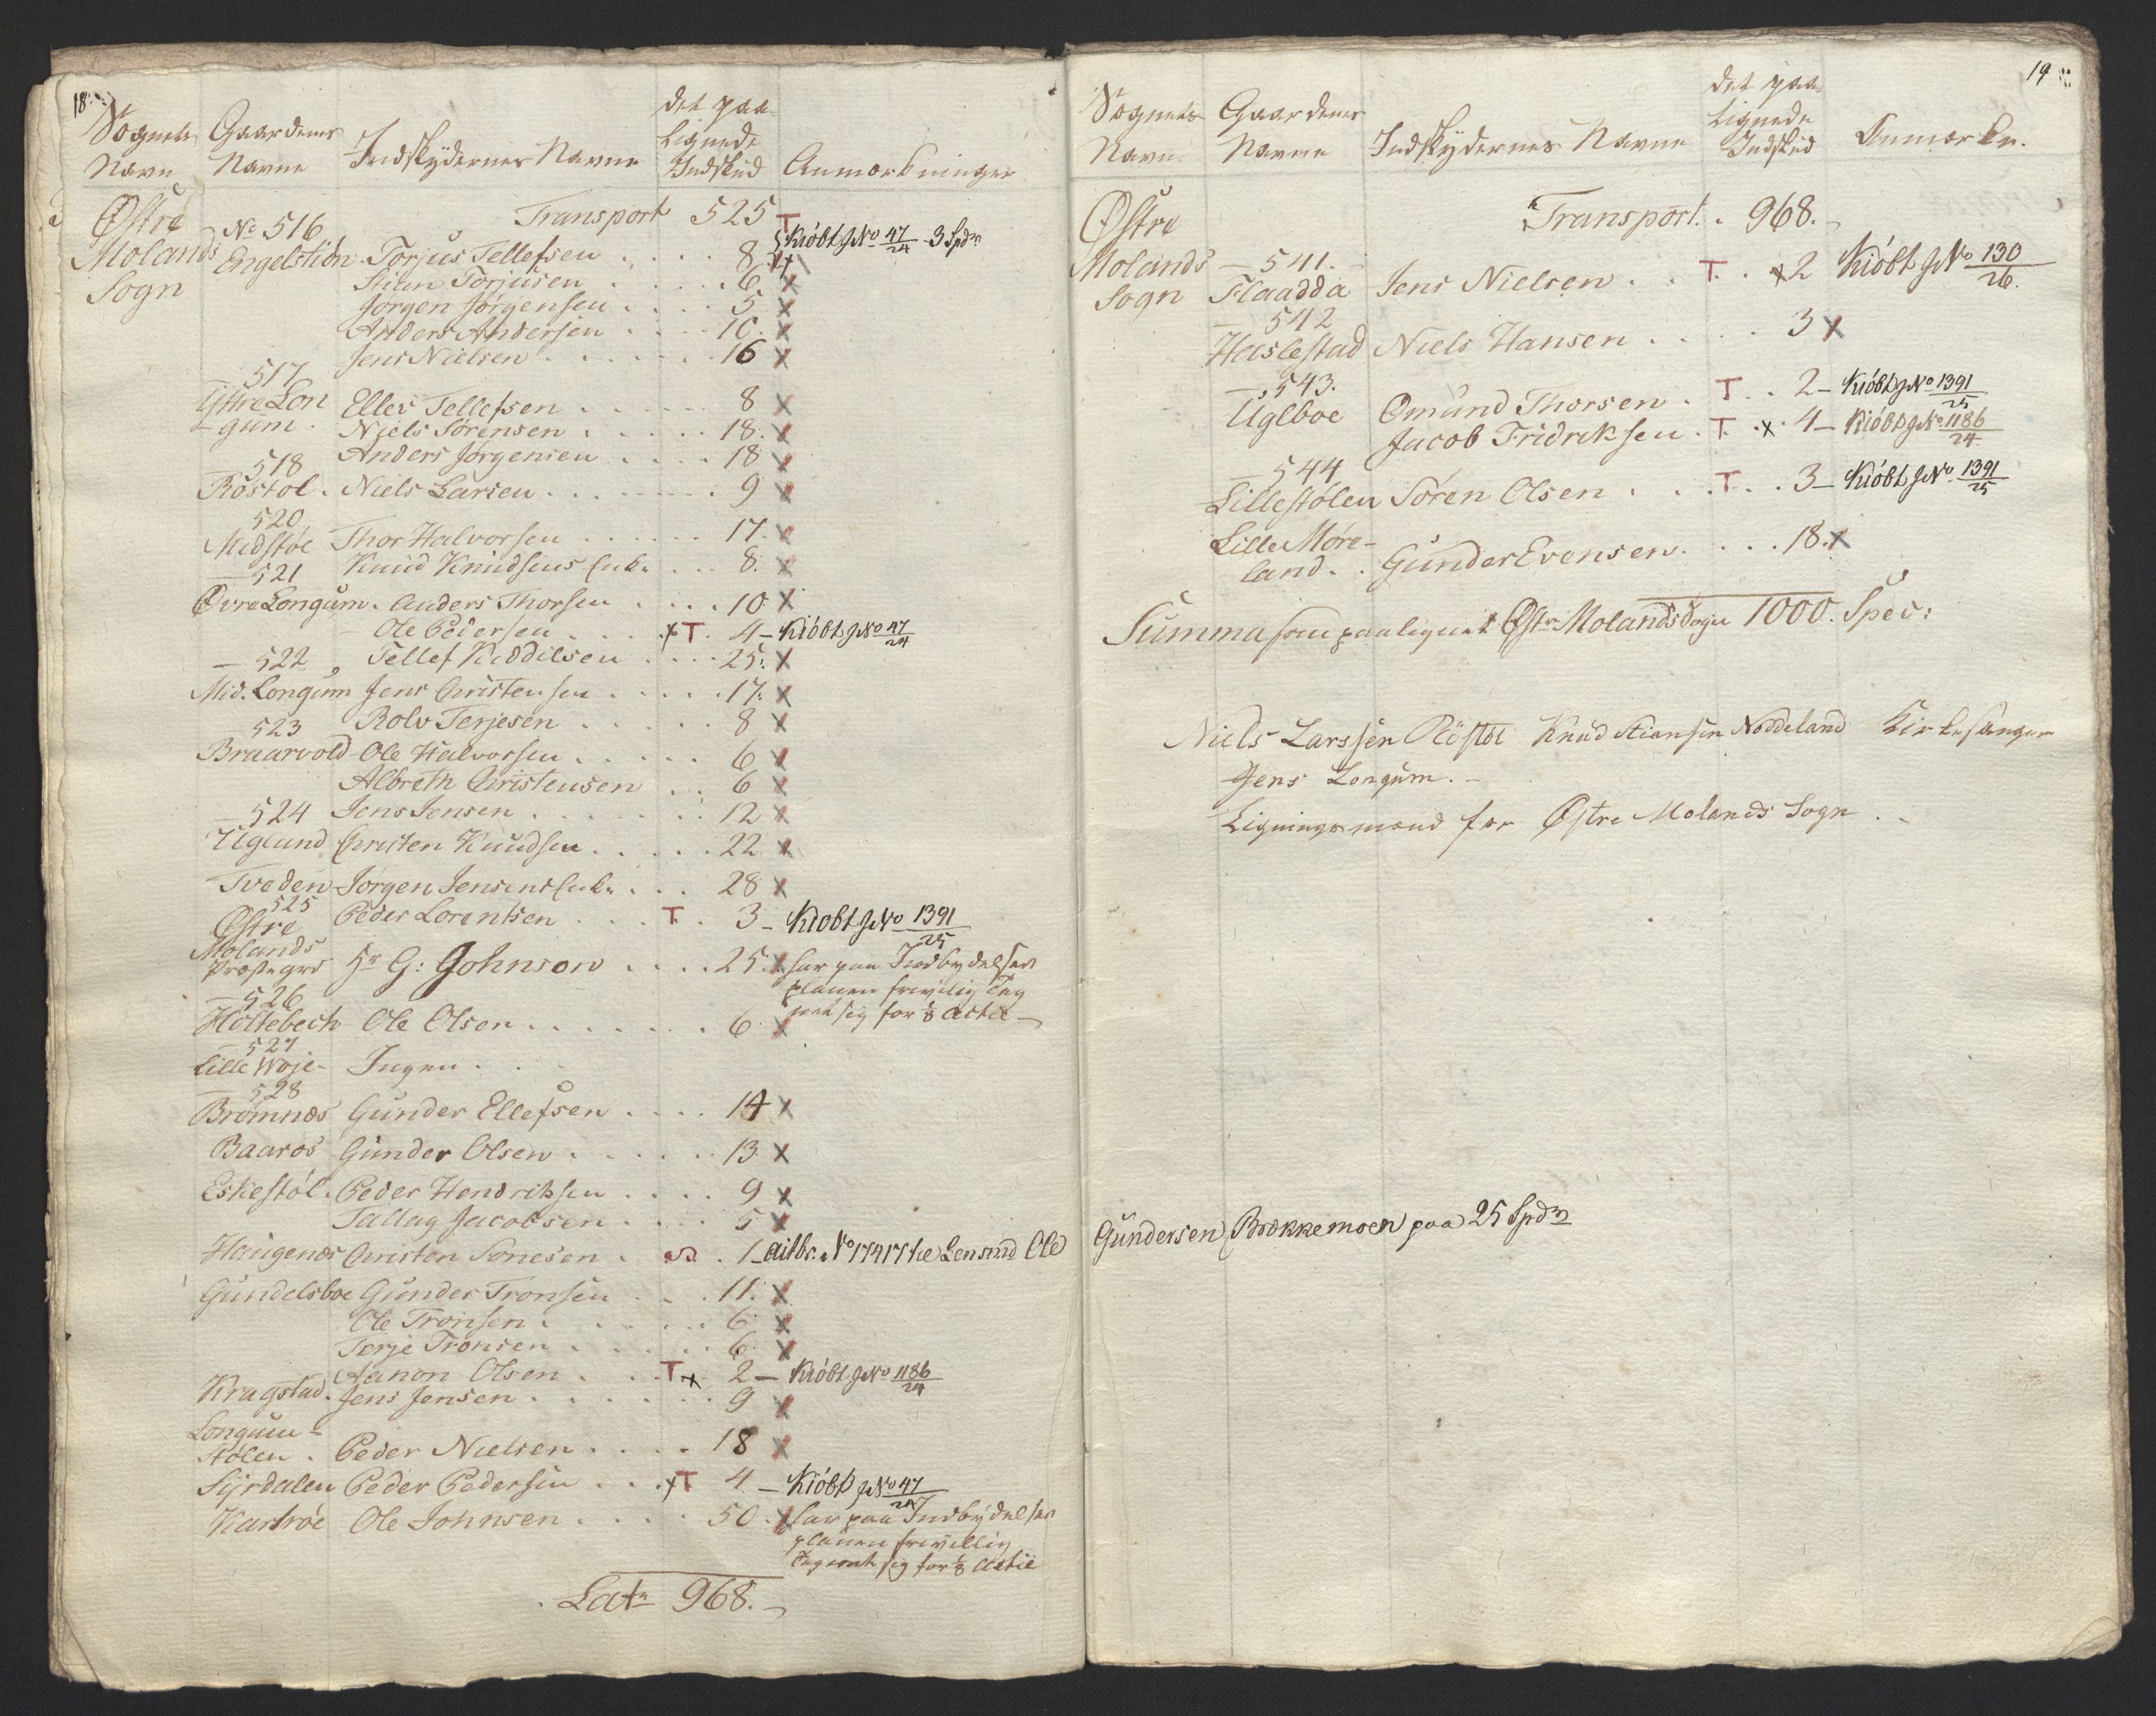 18
Sognets Navn
Gaardenes Navne
Indskydernes Navne
det paa-
lignede
Indskud
Anmærkninger
Østre Transport 525
No 516 T
Molands Engelstion Torjus Tellefsen . . . . 8 Kióbt No 47/24 3 Spdr
Sogn Stian Torjusen . . . . 6 x
Jørgen Jørgensen . . . . 5 x
Anders Andersen . . . . 10 x
Jens Nielsen . . . . 16 x
517
Østre Lon Ellev Tellefsen . . . . 8 x
gum . Niels Sörensen . . . . 18 x
Anders Jørgensen . . . . 18 x
518
Röstöl . Niels Larsen . . . . 9 x
520
Midstøe Thor Halvorsen . . . . 17 x
Knud Knudsens Enk: . . . 8 x
521
Øvre Longum . Anders Thorsen . . . . 10 x
Ole Pedersen . . . x T. 4 – Kióbt No 47/24
522 Tellef Kiddelsen . . . . 25 x
Mid. Longum Jens Christensen . . . . 17 x
523 Rolv Terjesen . . . . 8 x
Braarvold Ole Halvorsen . . . . 6 x
Albreth Christensen . . . 6 x
524 Jens Jensen . . . . 12 x
Uglund Christen Knudsen . . . . 22 x
Tveden Jörgen Jensens Enk: . . . 28 x
525
Østre Peder Lorentsen . . . T. 3 – Kióbt No 1391/25
Molands
Præstegrd Hr G: Johnson . . . . 25 x har paa Indbydelses
planen frivilig Teg
net sig for 1/8 Actie –
526
Holtebech Ole Olsen . . . . 6 x
527
Lille Woje – Ingen . . .
528
Bromnæs Gunder Ellefsen . . . . 14 x
Baarøs Gunder Olsen . . . . 13 x
Eskestól . Peder Hendriksen . . . . 9 x
Tallag Jacobsen . . . . 5 x
Haugenæs Christen Sonesen . . 1 – No 17417 Lensmd Ole
Gundelsboe Gunder Tronsen . . . . 11 x
Ole Tronsen . . . . 6 x
Terje Tronsen . . . . 6 x
Aanon Olsen . . . T x 2 – Kióbt No 1186/24
Kragstad . Jens Jensen . . . . 9 x
Longum-
stölen . Peder Nielsen . . . . 18 x
Syrdalen Peder Pedersen . . . x T 4 – Kióbt No 47/24
Karhøe Ole Johnsen . . . . 50 x har paa Indbydelses
planen frivillig
Tegnet sig for 1/8 Actie
Lats 968. –
19
Sognets Navn
Gaardenes Navne
Indskydernes Navne
det paa-
lignede
Indskud
Anmærkn.
Østre Transport . . 968. –
Molands 541.
Sogn Flaadda Jens Nielsen . . T. . x 2 Kióbt No 130/26.
542
Haslestad Niels Hansen . . . . 3 x
543.
Uglboe Omund Thorsen . T. . 2 – Kióbt No 1391/25
Jacob Fridriksen . T. . x 4 – Kióbt No 1186/24
544
Lillestølen Sören Olsen . . T. . 3 – Kióbt No 1391/25
Lille Möre-
land . . Gunder Evensen . . . . 18 x
Summa som paalignet Østre Molands Sogn 1000. Spec:
Niels Larssen Röstöl Knud Stiansen Noddeland Kirkesanger
Jens Longum . –
Ligningsmænd for Østre Molands Sogn . –
Gundersen Brekkemoen paa 25 Spdr